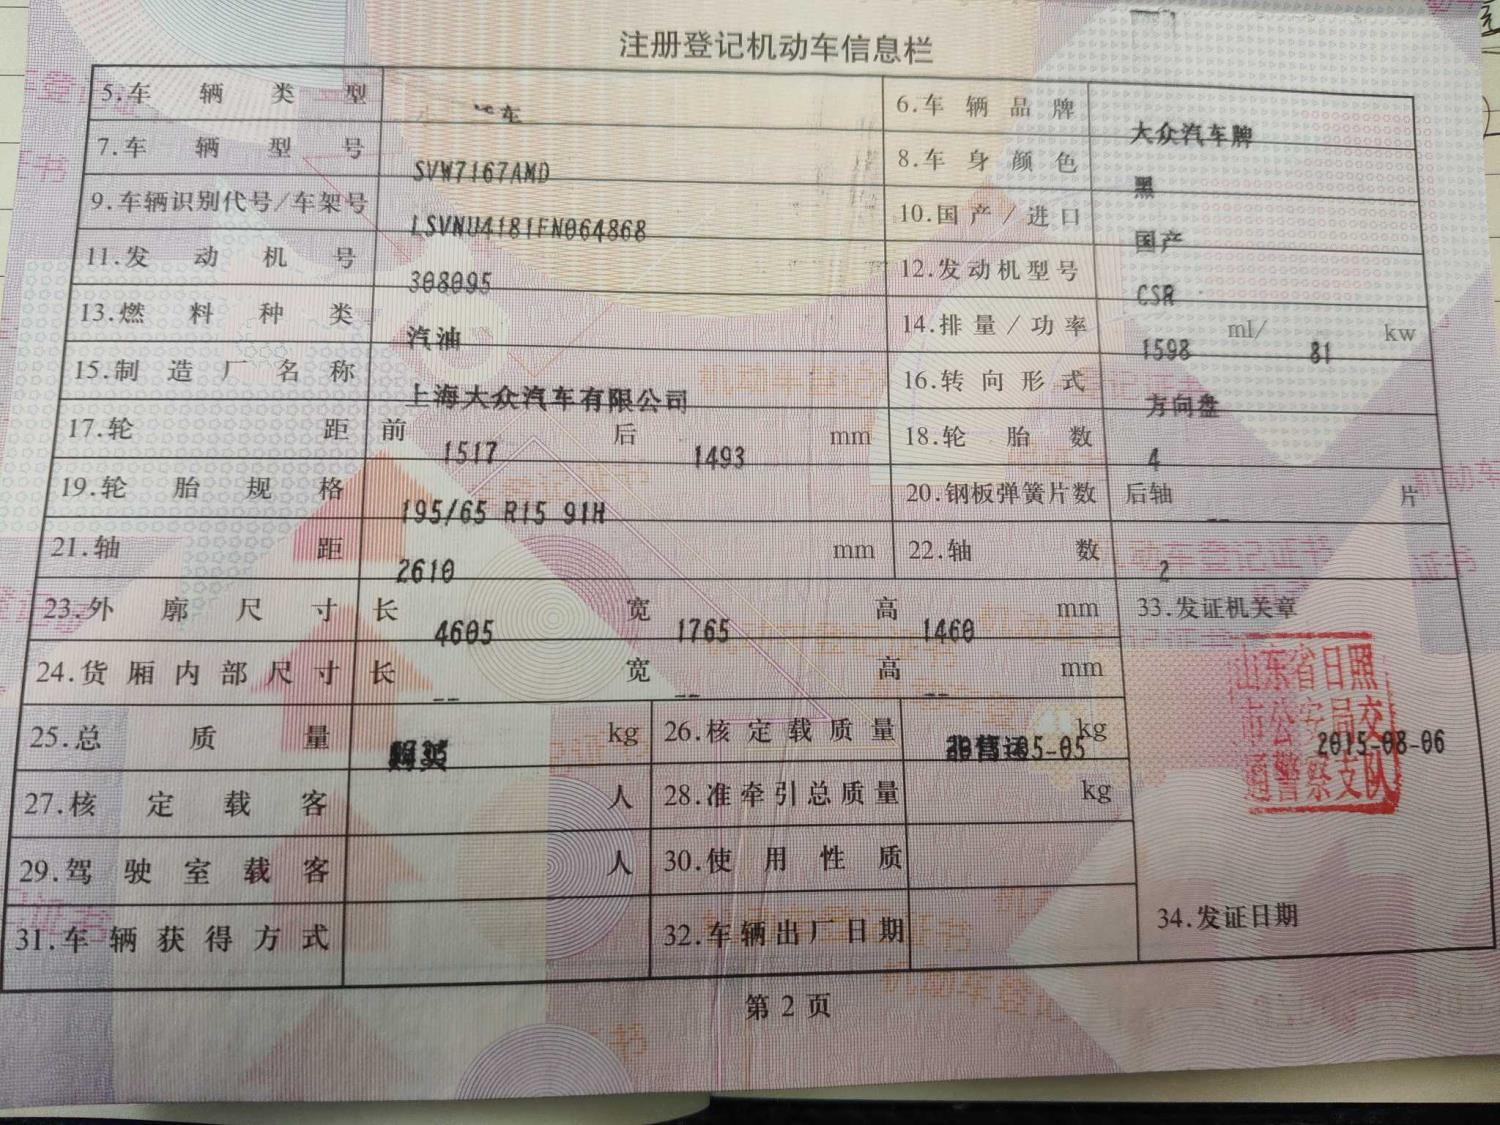 注册登记机动车信息栏
5.车辆类型 车 6.车辆品牌 大众汽车牌
7.车辆型号 SVW7167AMD 8.车身颜色 黑
9.车辆识别代号/车架号 LSVNU4181FN064868 10.国产/进口 国产
11.发动机号 308095 12.发动机型号 CSR
13.燃料种类 汽油 14.排量/功率 1598 ml/ 81 kw
15.制造厂名称 上海大众汽车有限公司 16.转向形式 方向盘
17.轮距 前 1517 后 1493 mm 18.轮胎数 4
19.轮胎规格 195/65 R15 91H 20.钢板弹簧片数 后轴 -- 片
21.轴距 2610 mm 22.轴数 2
23.外廓尺寸 长 4605 宽 1765 高 1460 mm 33.发证机关章
24.货厢内部尺寸 长 -- 宽 -- 高 -- mm
山东省日照
市公安局交
通警察支队
25.总质量 kg 26.核定载质量 kg 2015-08-06
27.核定载客 人 28.准牵引总质量 kg
29.驾驶室载客 人 30.使用性质
31.车辆获得方式 32.车辆出厂日期 34.发证日期
第 2 页